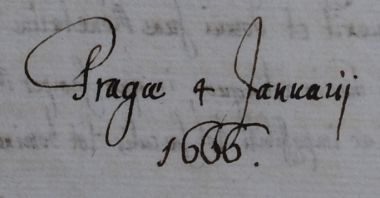 Pragæ 4 Januarij
1666.